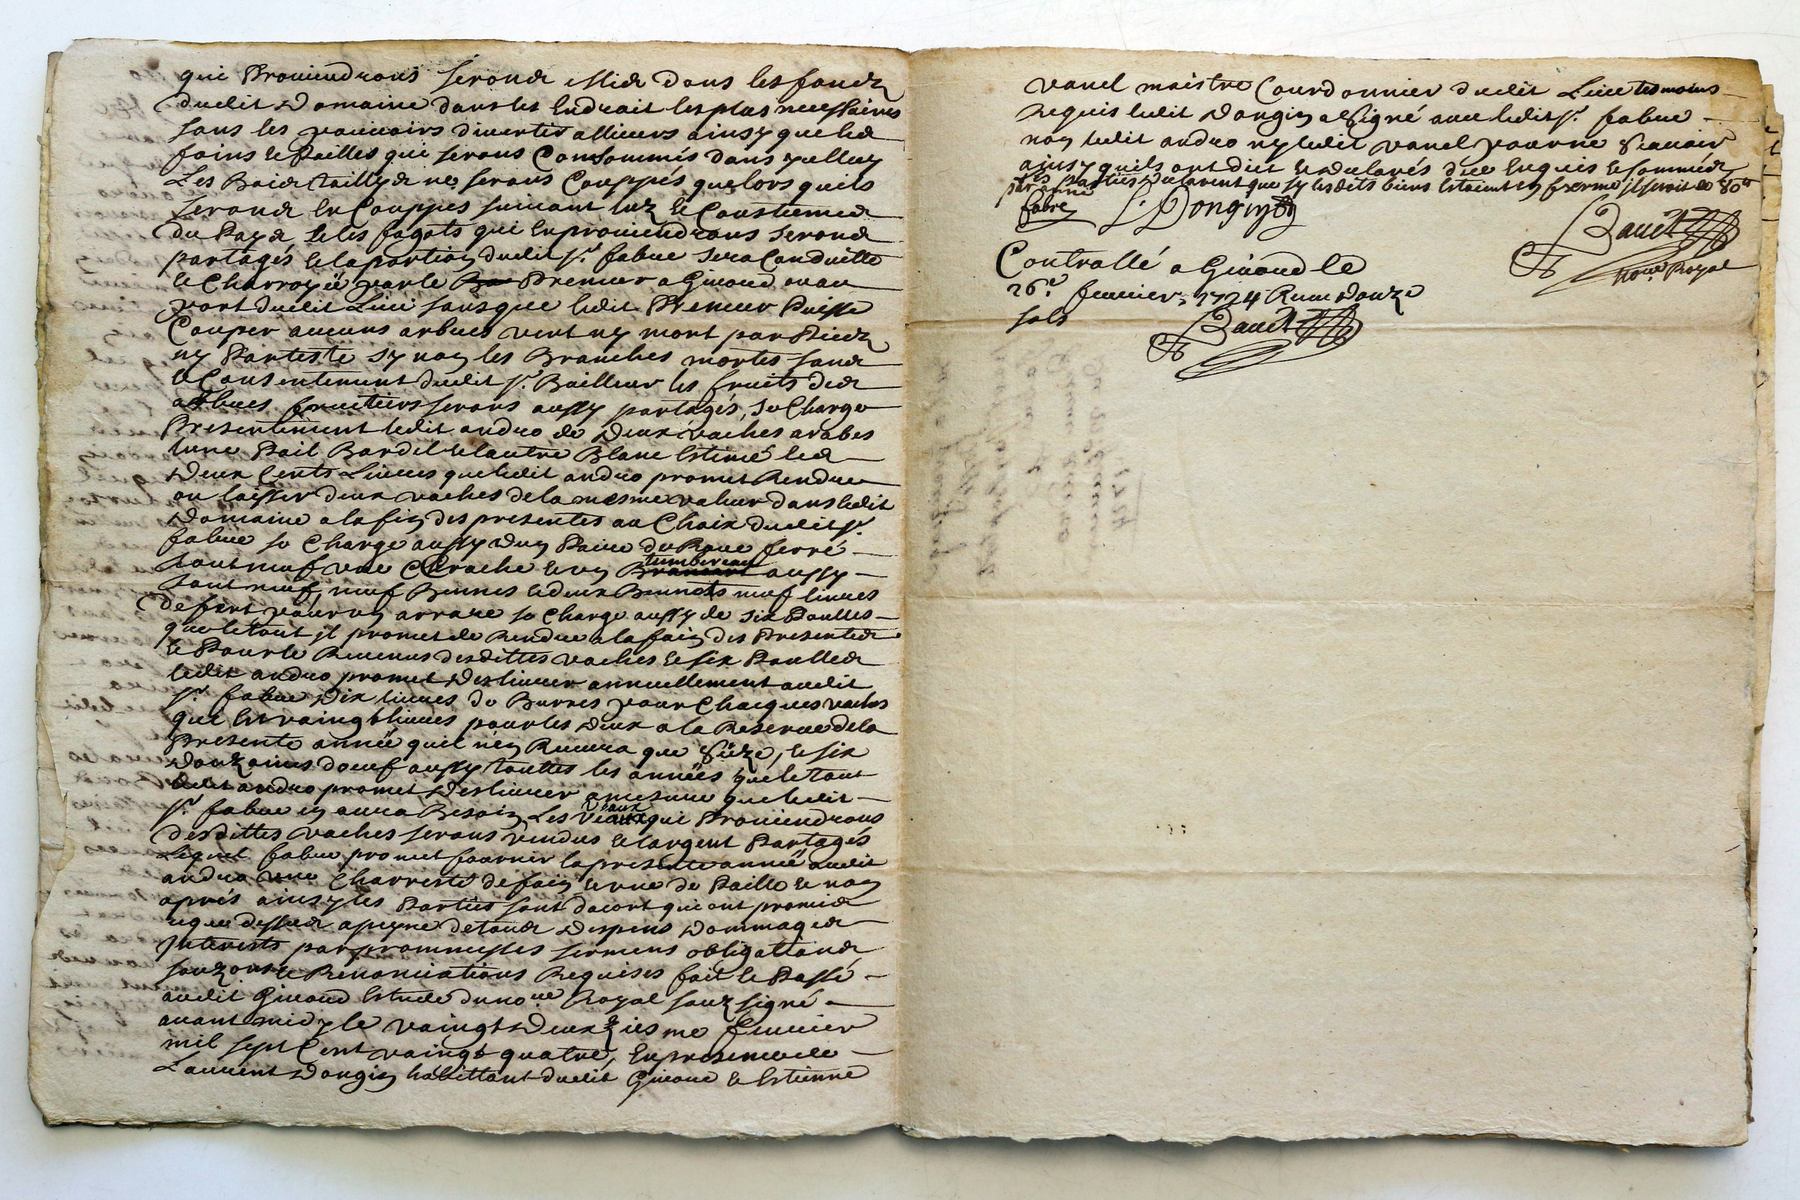 qui Proviendrons serond Mis dans les fonds
dudit Domaine dans les Endroit les plus necessaires
sans les pouvoirs divertir allieurs ainsy que les
foins et Pailles qui serons Consommés dans yælluy
Les Bois taillys ne serons Couppés que lors quils
serond En Couppes suivant luz et Coustumes
du Pays et les fagots qui En proviendrons serond
partagés et la portion dudit sr. fabre sera Conduitte
et Charroyée par le Preneur a Givord ou au
port dudit Lieu sans que ledit Preneur Puisse
Couper aucuns arbres vert ny mort par Pieds
ny Par teste sy non les Branches mortes sand
le Consentement dudit sr. Bailleur les fruits des
arbres fruitiers serons aussy partagés, se Charge
Presentement ledit andré de Deux vaches arabes
lune Poil Bardel et lautre Blanc Estimé les
Deux Cents Livres que ledit andré promet Rendre
ou laisser deux vaches de la mesme valeur dans ledit
Domaine a la fin des presentes au Choix dudit sr.
fabre se Charge aussy dun Paire de Roue ferré
tout neuf une Charche et un tumbereau aussy
tout neuf, neuf Bennes et deux Bennots neuf livres
de fert pour un arraire se Charge aussy de six Poulles
que le tout jl promet de Rendre a la fain des Presentes
et Pour le Revenus desdittes vaches et six Poulles
ledit andré promet Deslivrer annuellement audit
sr. fabre Dix livres de Burres pour Chaques vaches
qui Est vaingt livres pour les deux a la Reserve de la
Presente année quil n'en Recevra que Seize, et six
Douzaines doeuf aussy touttes les années que le tout
ledit andré promet Deslivrer a mesure que ledit
sr. fabre en aura Besoin Les veaux qui Proviendrons
desdittes vaches serons vendus et largent Partagés
Lequel fabre promet fournir la presente année audit
andré une Charretté de foin et une de Paille et non
aprés ainsy les Parties sont dacort qui ont promis
ce que dessus a peyne de tous Despens Dommages
Jnterests par prommesses sermens obligations
et Renonciations Requises fait et Passé
audit Givord Estude du nore. Royal souz signé
avant midy le vaingt Deuxziesme fevrier
mil sept Cent vaingt quatre, En presence de
Laurent Dongin habittant dudit Givord et Estienne
vanel maistre Courdonnier dudit Lieu tesmoins
Requis ledit Dongin a signé avec ledit sr. fabre
non ledit andré ny ledit vanel pour ne scavoir
ainsy quils ont dit et declarés de ce Enquis et sommés
les Parties declarent que sy lesdits biens Estoient En ferme jl seroit de 80ll
par anné
fabre L. Dongin
Bault
nore. Royal
Controllé a Givord le
26e. fevrier, 1724 Receu douze
sols
Bault